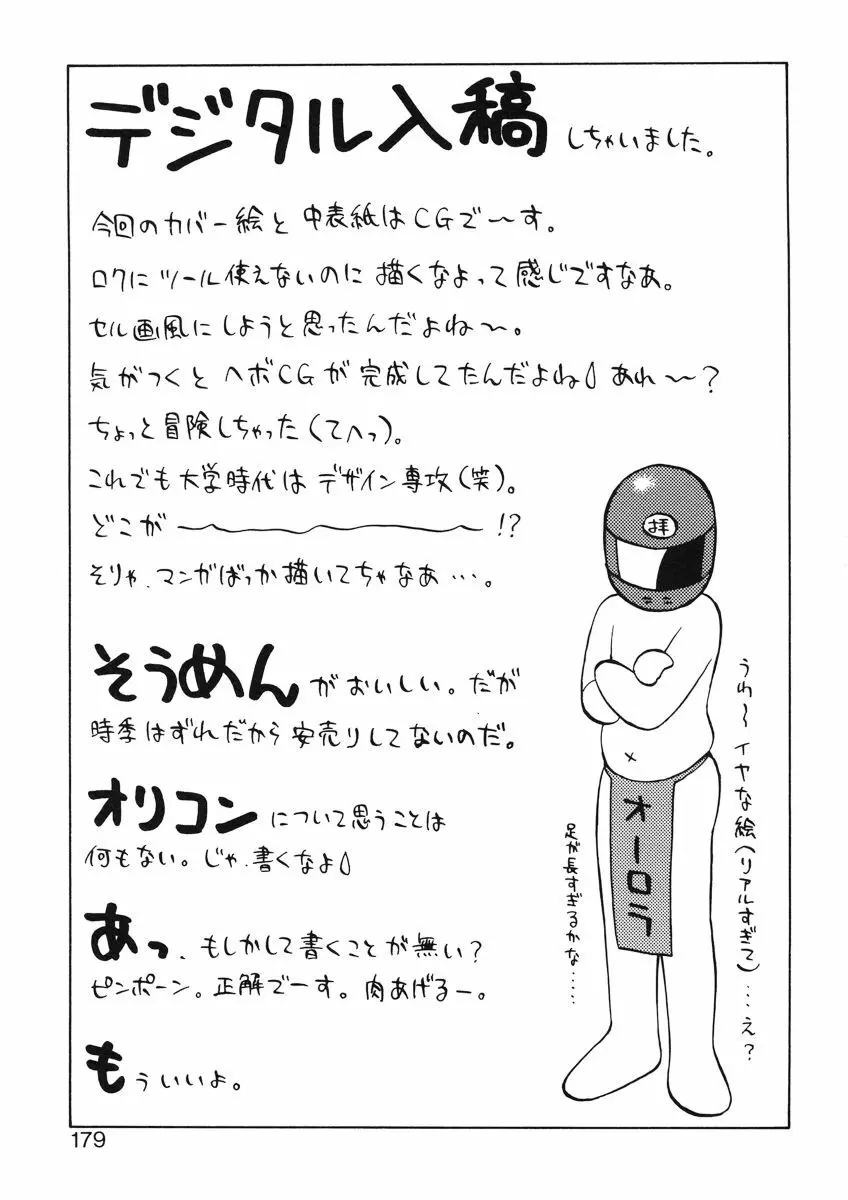 デジタル入稿しちゃいました。
今回のカバー絵と中表紙はCGで〜す。
ロクにツール使えないのに描くなよって感じですなあ。
セル画風にしようと思ったんだよね〜。
気がつくとヘボCGが完成してたんだよね あれ〜?
ちょっと冒険しちゃった(てへっ)。
これでも大学時代はデザイン専攻(笑)。
どこが〜〜〜〜!?
そりゃ、マンガばっか描いてちゃなあ…。
そうめんがおいしい。だが
時季はずれだから安売りしてないのだ。
オリコンについて思うことは
何もない。じゃ、書くなよ
あっ、もしかして書くことが無い?
ピンポーン。正解でーす。肉あげるー。
もういいよ。
拝
オーロラ
うわ〜イヤな絵(リアルすぎて)…え?
足が長すぎるかな……
179